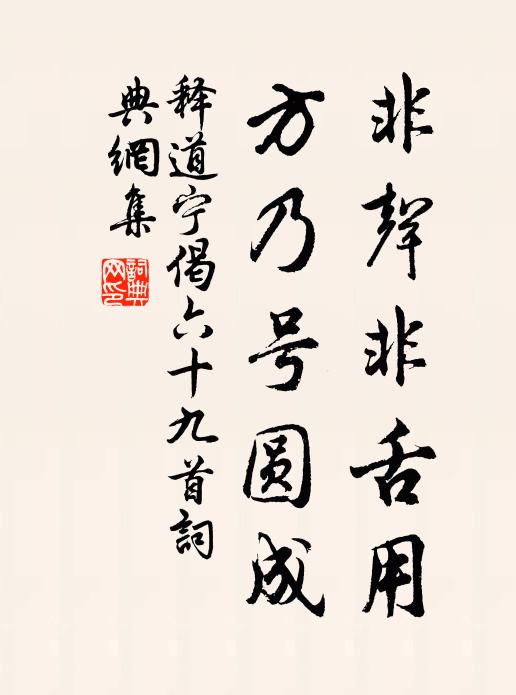 非聲非舌用
方乃号圆成
释道宁偈六十九首詞
典網集
詞典
网印